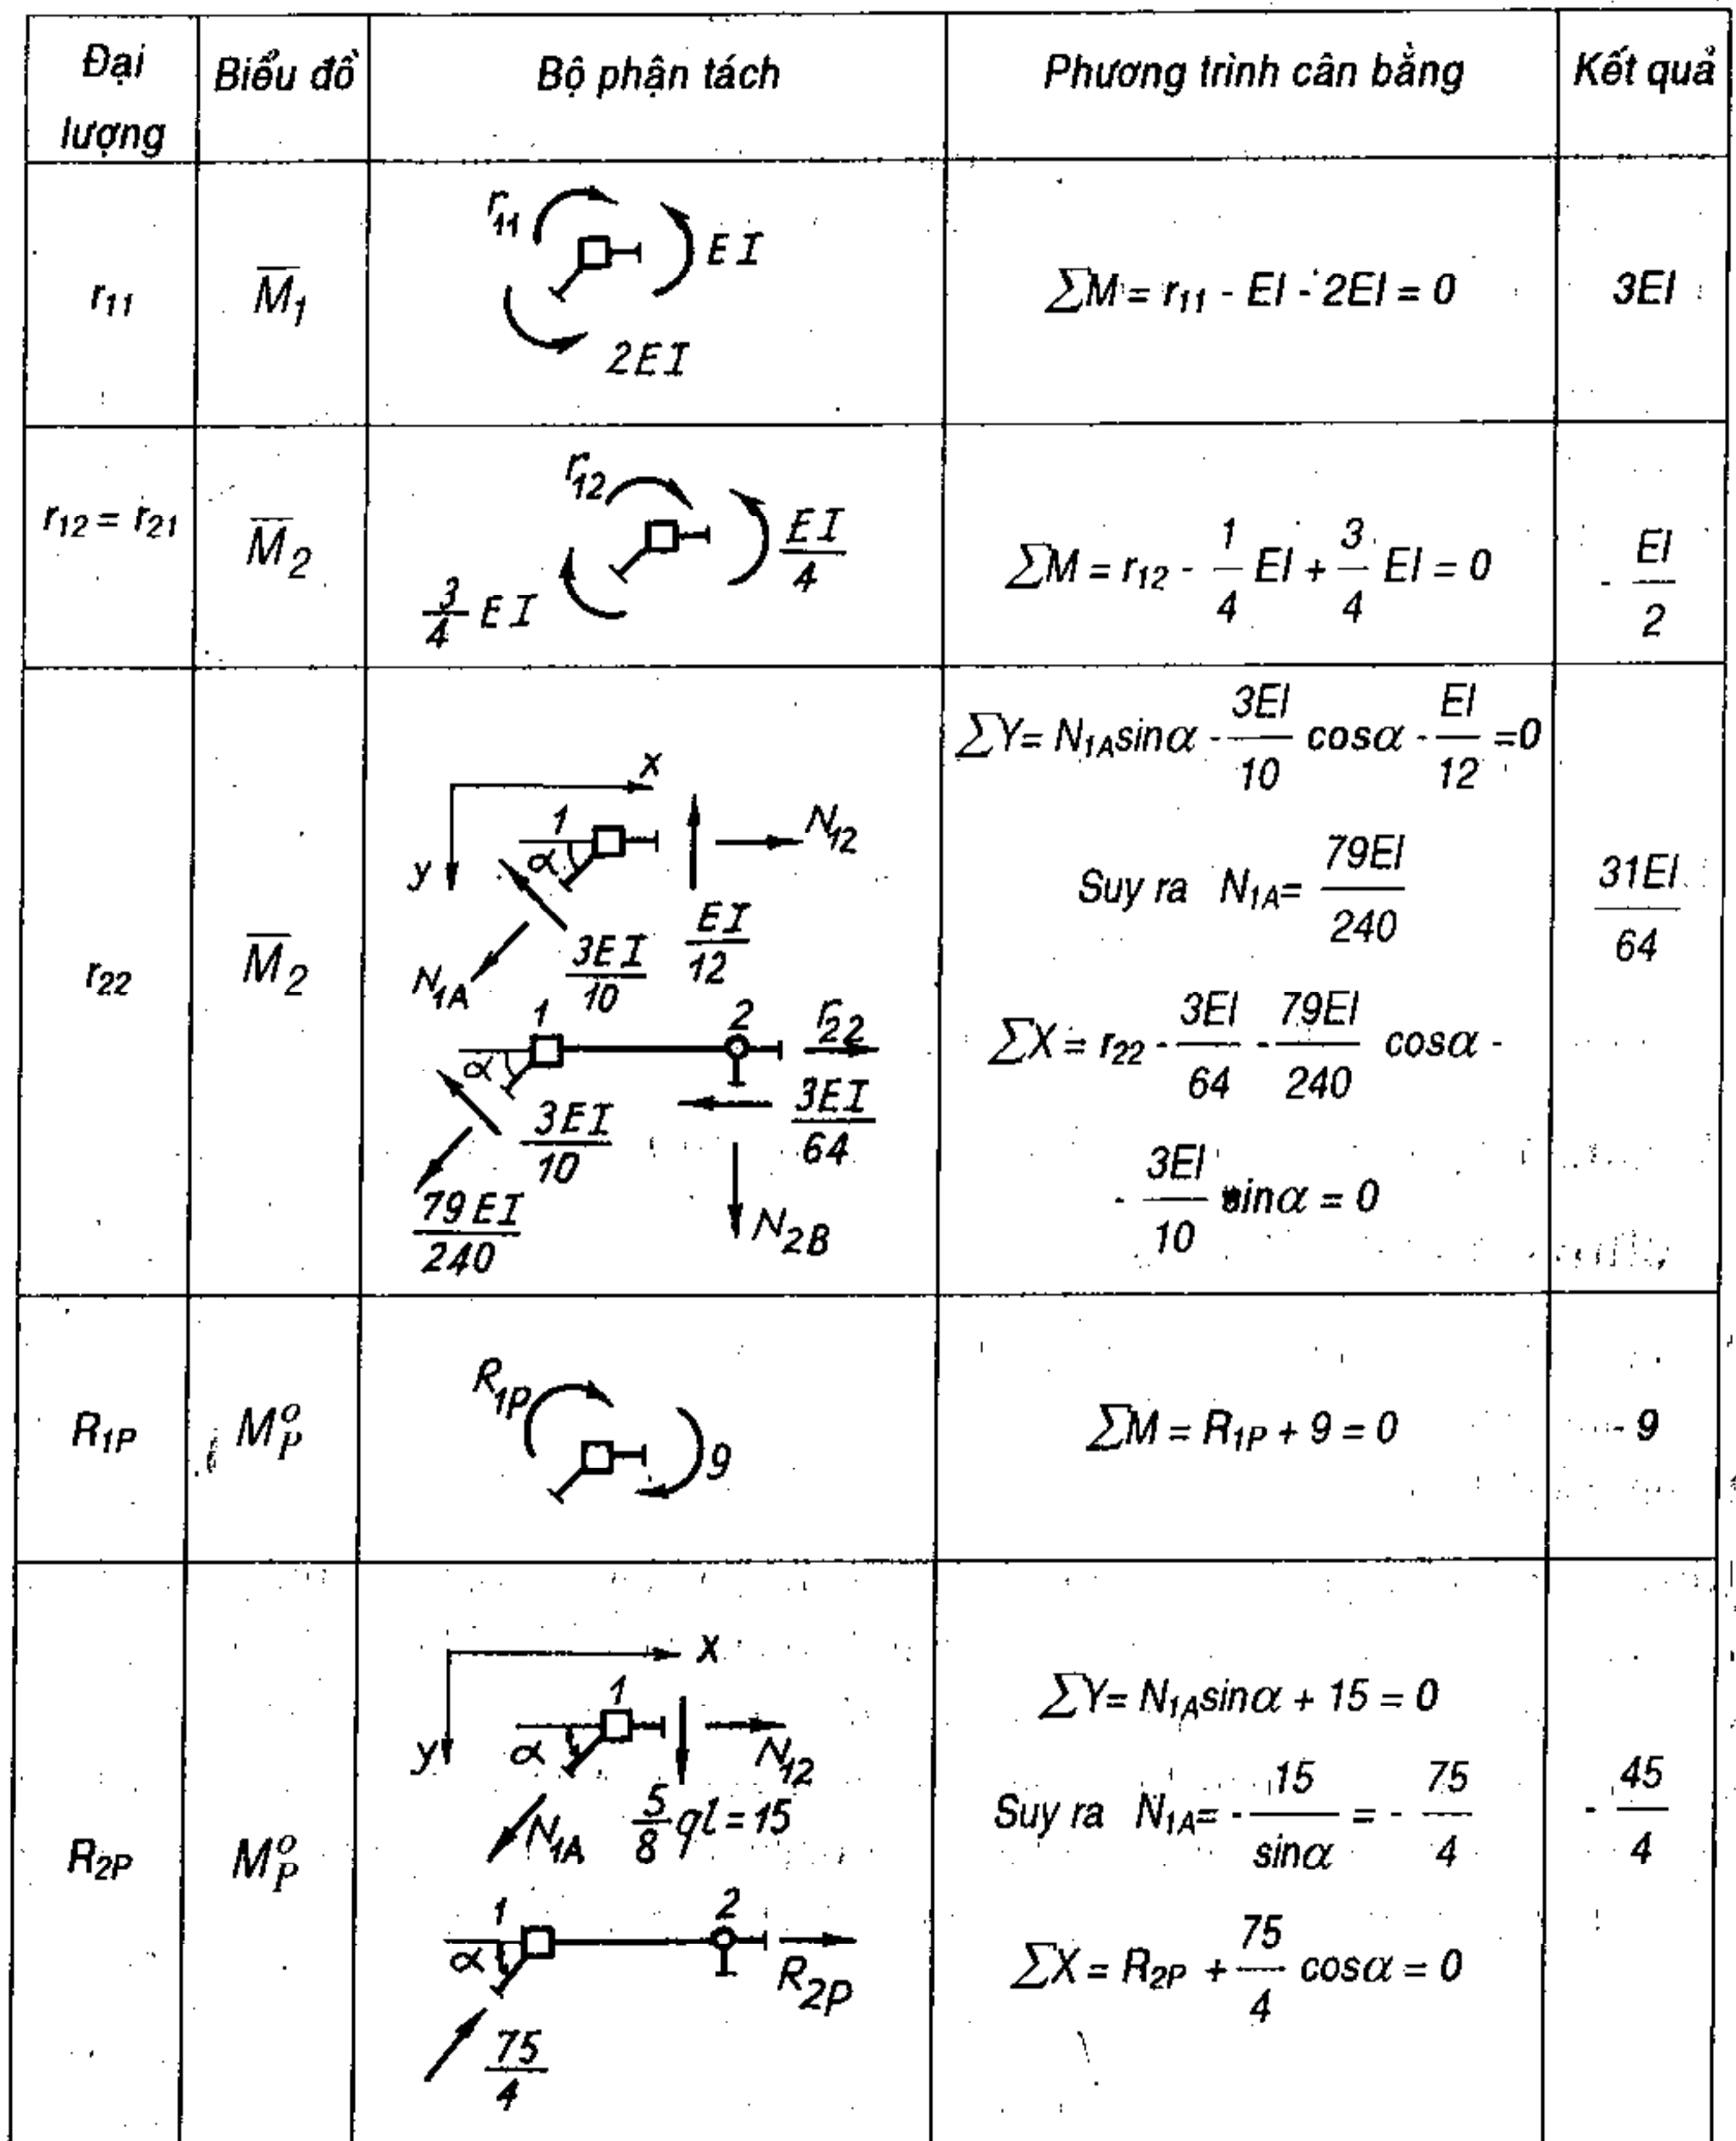 Đại lượng | Biểu đồ | Bộ phận tách | Phương trình cân bằng | Kết quả
r₁₁ | M̅₁ | r₁₁ EI 2EI | ∑M = r₁₁ - EI - 2EI = 0 | 3EI
r₁₂ = r₂₁ | M̅₂ | r₁₂ EI/4 3/4 EI | ∑M = r₁₂ - 1/4 EI + 3/4 EI = 0 | - EI/2
r₂₂ | M̅₂
x
y
1
α
N₁₂
N₁A
3EI/10
EI/12
1
2
r₂₂
α
3EI/10
3EI/64
79EI/240
N₂B
∑Y= N₁Asinα - 3EI/10 cosα - EI/12 =0
Suy ra N₁A= 79EI/240
∑X = r₂₂ - 3EI/64 - 79EI/240 cosα -
- 3EI/10 sinα = 0
31EI/64
R₁P | M°P | R₁P 9 | ∑M = R₁P + 9 = 0 | - 9
R₂P | M°P
x
y
1
α
N₁₂
N₁A
5/8 ql = 15
1
2
α
R₂P
75/4
∑Y= N₁Asinα + 15 = 0
Suy ra N₁A= - 15/sinα = - 75/4
∑X = R₂P + 75/4 cosα = 0
- 45/4